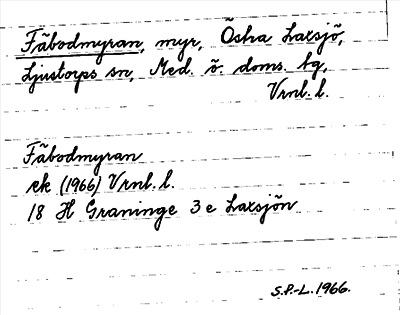 Fäbodmyran, myr, Östra Laxsjö,
Ljustorps sn, Med. ö. doms. tg,
Vrnl. l.
Fäbodmyran
ek (1966) Vrnl. l.
18 H Graninge 3 e Laxsjön
S.P.-L. 1966.